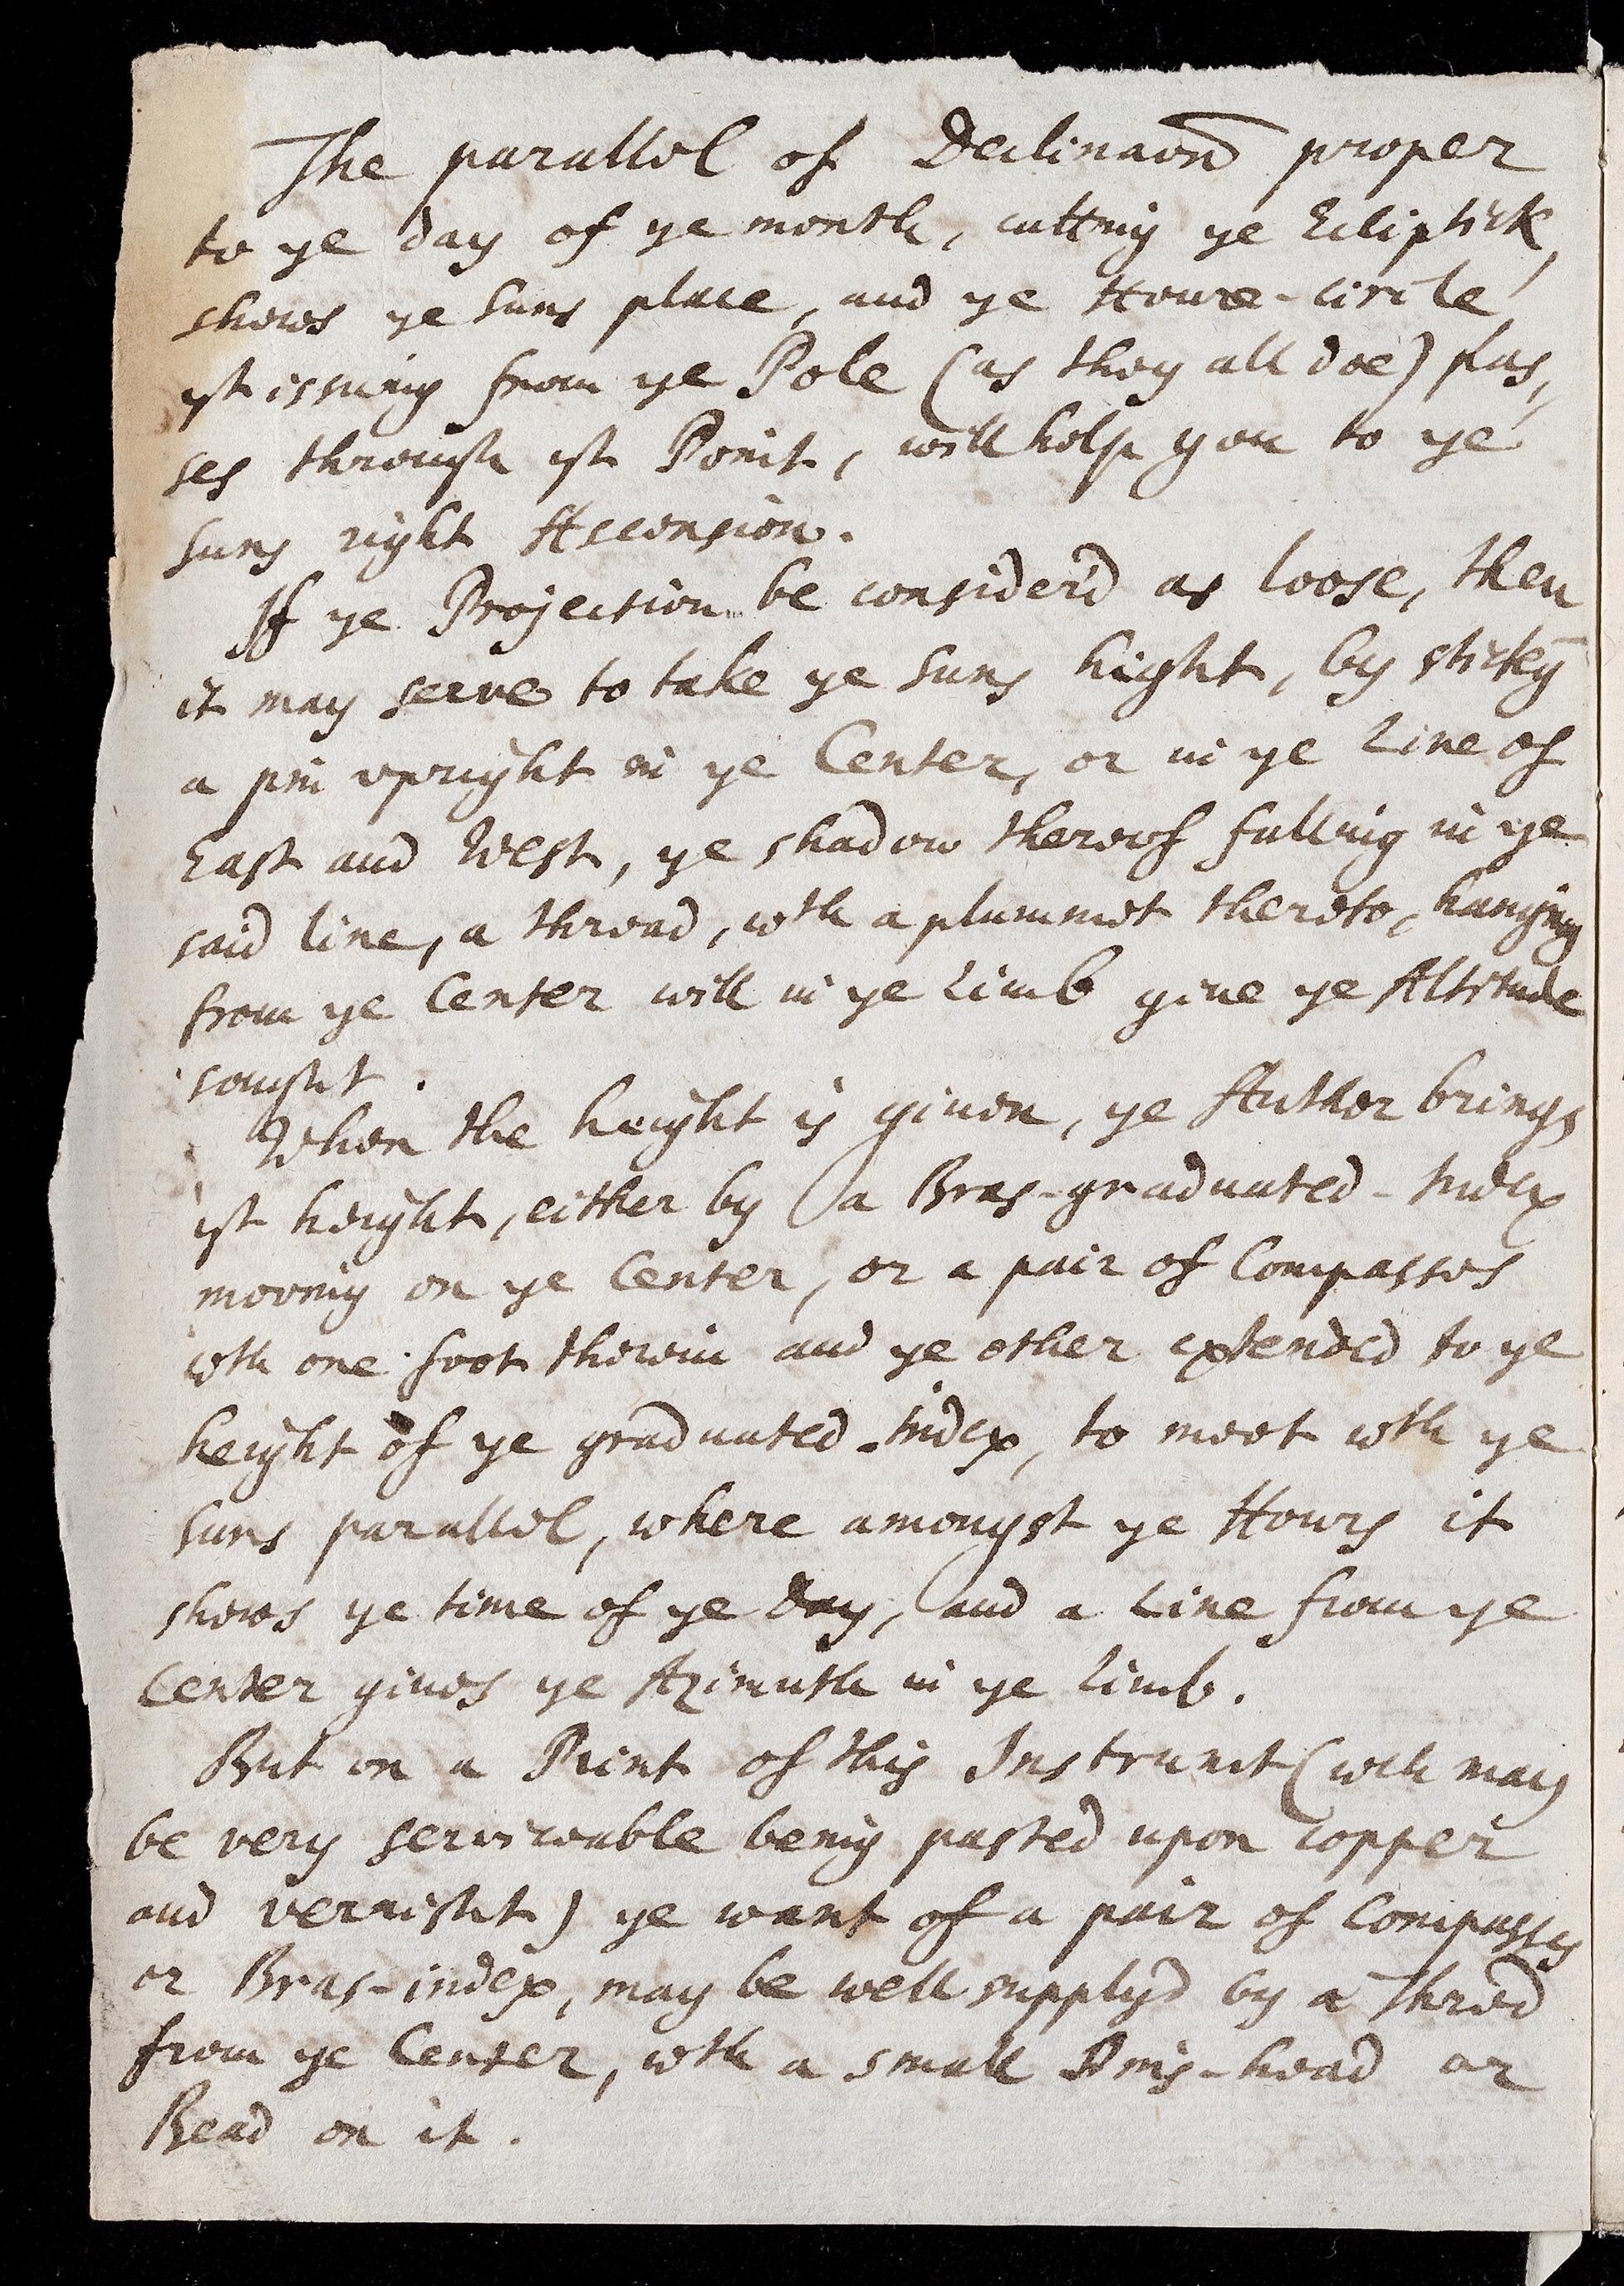 The parallel of Declinaon proper
to ye day of ye month, cutting ye Ecliptick,
shews ye suns place, and ye Houre-circle,
yt issuing from ye Pole (as they all doe) pas,
ses through yt Point, will help you to ye
suns right Ascension.
If ye Projection be consider'd as loose, then
it may serve to take ye suns hight, by stickg
a pin upright in ye Center, or in ye Line of
East and West, ye shadow thereof falling in ye
said line, a thread, wth a plummet thereto, hanging
from ye Center will in ye Limb give ye Altitude
sought.
When the height is given, ye Author brings
yt height, either by a Bras-graduated-Index
moving on ye Center, or a pair of Compasses
wth one foot therein and ye other extended to ye
height of ye graduated-Index, to meet wth ye
suns parallel, where amongst ye Hours it
shews ye time of ye Day, and a Line from ye
Center gives ye Azimuth in ye Limb.
But on a Print of this Instrumt (wch may
be very serviceable being pasted upon copper
and vernisht) ye want of a pair of Compasses
or Bras-index, may be well supply'd by a Thred
from ye Center, wth a small Pins-head or
Bead on it.